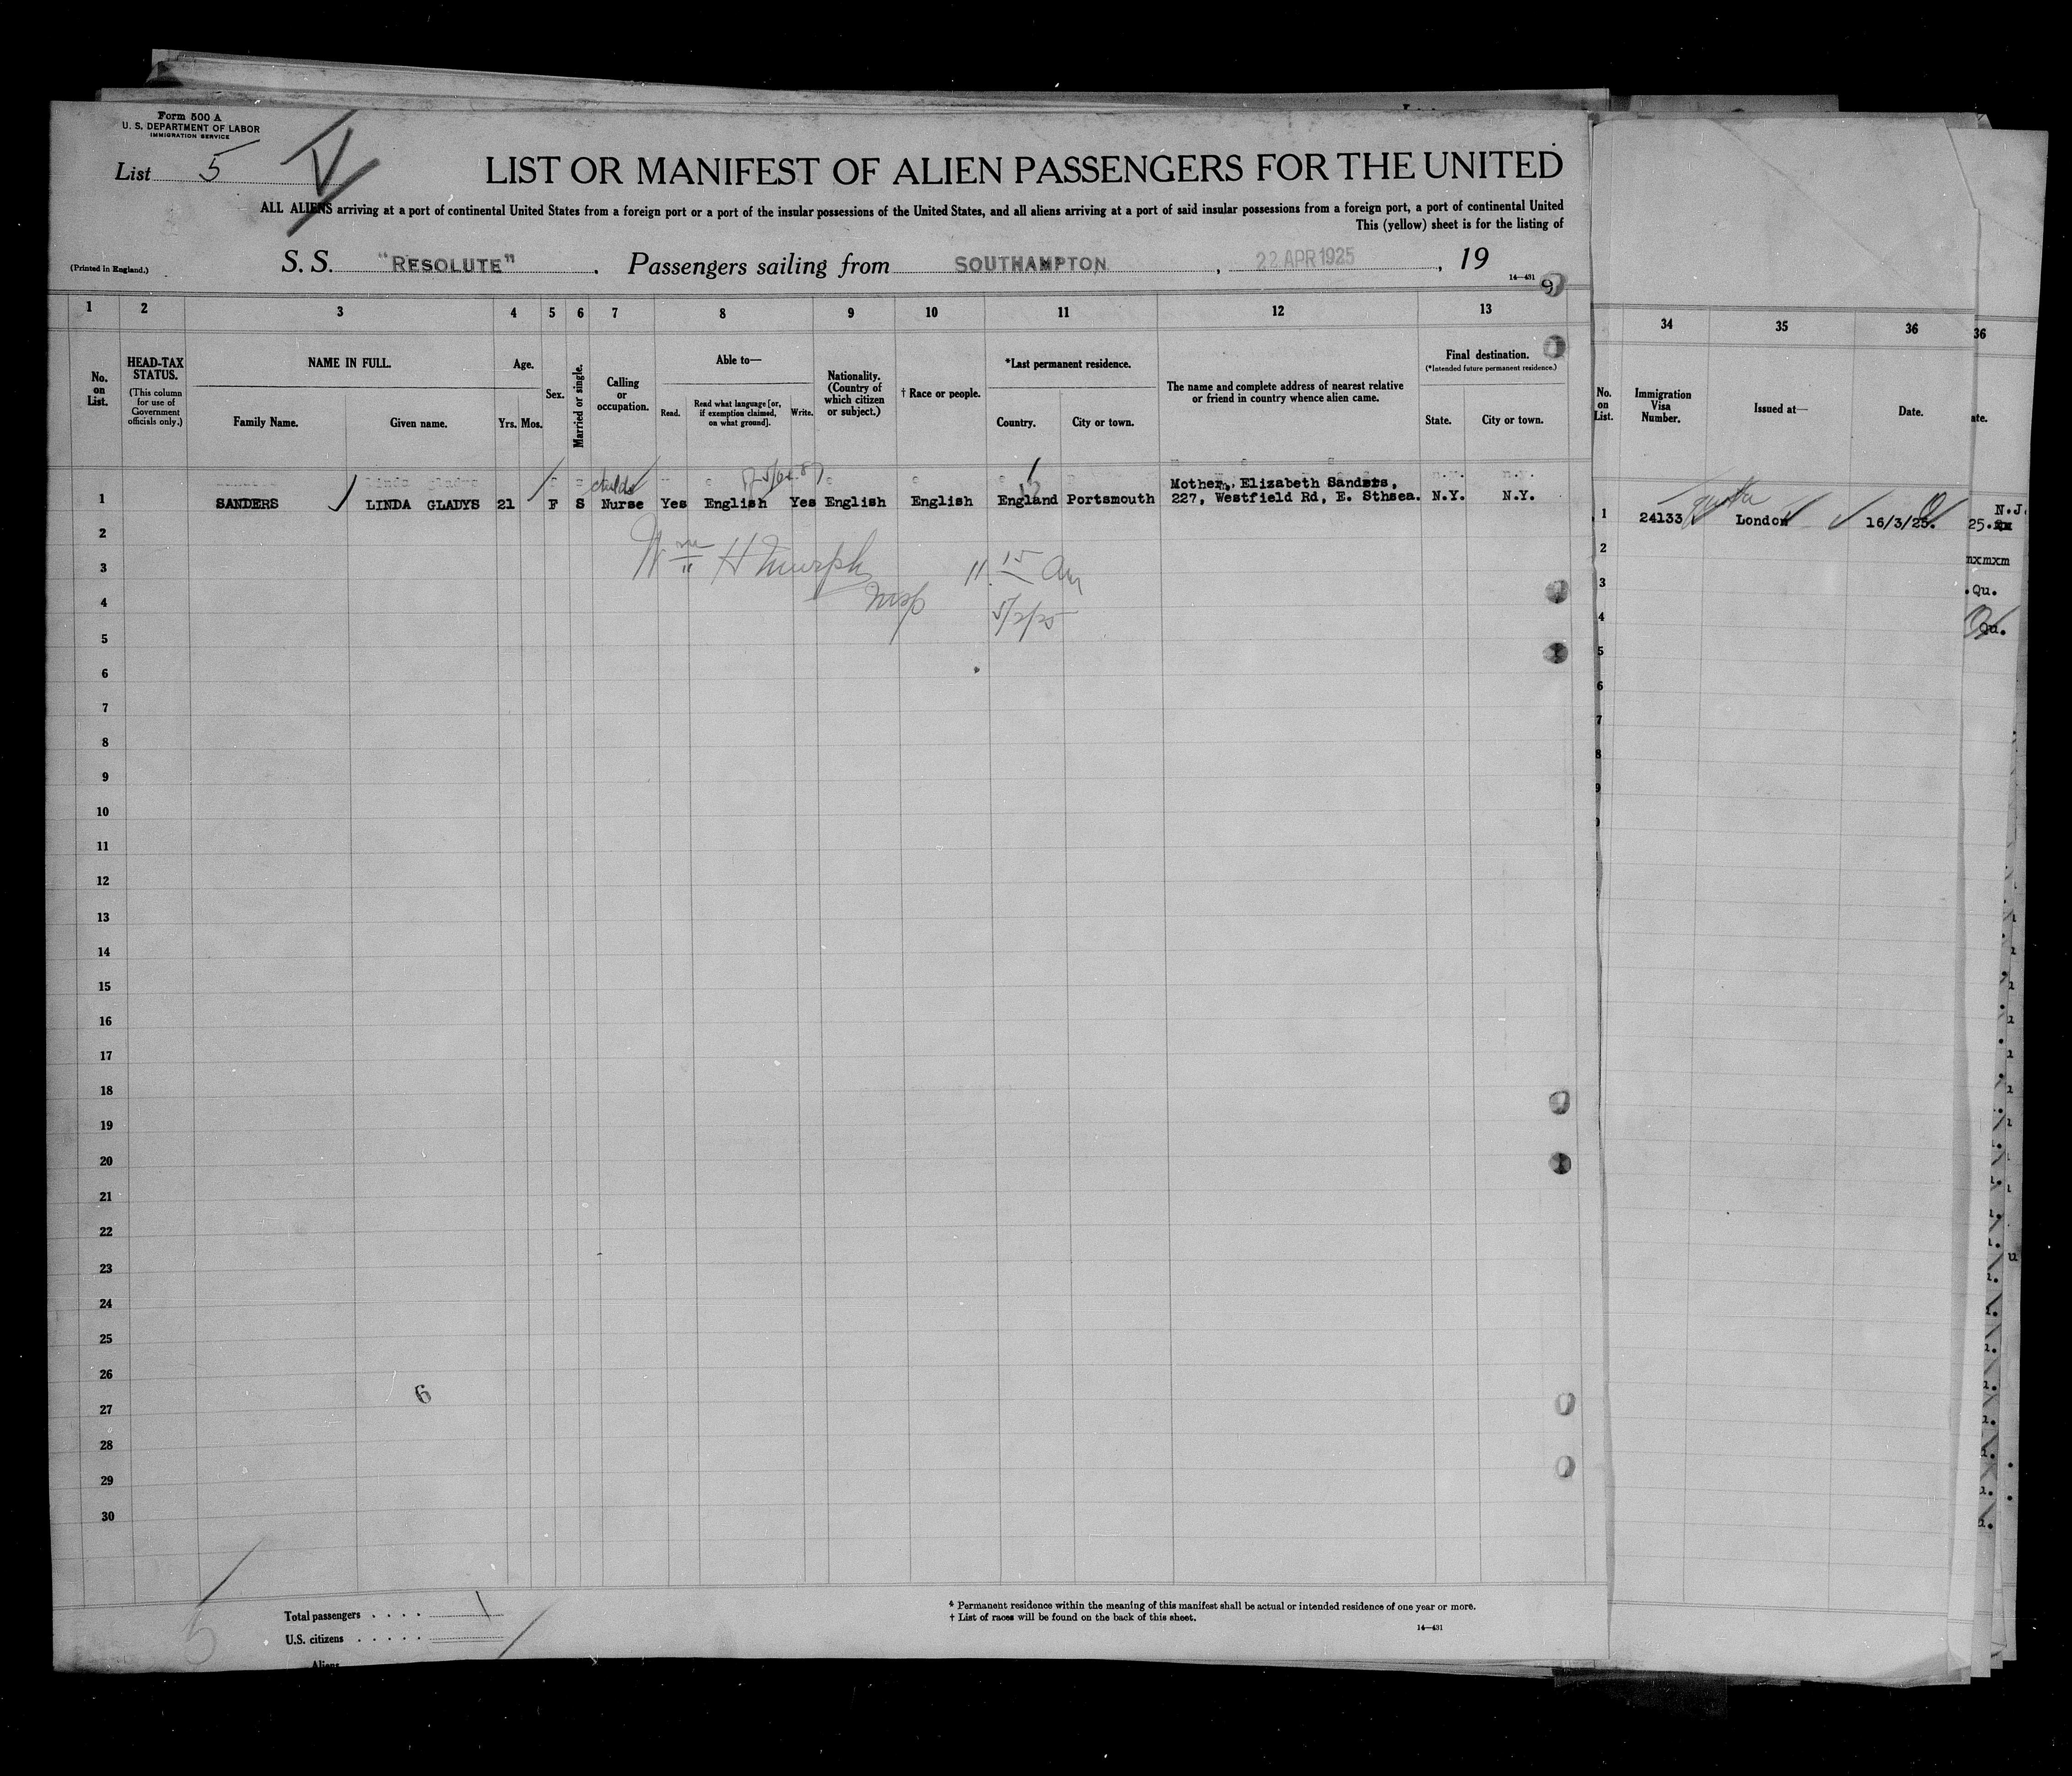 Form 500 A
U. S. DEPARTMENT OF LABOR
IMMIGRATION SERVICE
List 5
LIST OR MANIFEST OF ALIEN PASSENGERS FOR THE UNITED
ALL ALIENS arriving at a port of continental United States from a foreign port or a port of the insular possessions of the United States, and all aliens arriving at a port of said insular possessions from a foreign port, a port of continental United
This (yellow) sheet is for the listing of
(Printed in England.)
S. S. "RESOLUTE" . Passengers sailing from SOUTHAMPTON , 22 APR 1925 , 19
14—431
9
1 2 3 4 5 6 7 8 9 10 11 12 13
No. on List.
HEAD-TAX STATUS.
(This column for use of Government officials only.)
NAME IN FULL.
Family Name. Given name.
Age.
Yrs. Mos.
Sex.
Married or single.
Calling or occupation.
Able to—
Read. Read what language [or, if exemption claimed, on what ground]. Write.
Nationality. (Country of which citizen or subject.)
† Race or people.
*Last permanent residence.
Country. City or town.
The name and complete address of nearest relative or friend in country whence alien came.
Final destination.
(*Intended future permanent residence.)
State. City or town.
34 35 36 36
No. on List.
Immigration Visa Number.
Issued at—
Date.
ate.
childs
1 SANDERS LINDA GLADYS 21 F S Nurse Yes English Yes English English England Portsmouth Mother, Elizabeth Sanders,
227, Westfield Rd, E. Sthsea. N.Y. N.Y.
quota
1 24133 London 16/3/25.
N.J.
25.
mxmxm
.Qu.
Qu.
Wm H Murphy
Insp
11 15 Am
5/2/25
2
3
4
5
6
7
8
9
10
11
12
13
14
15
16
17
18
19
20
21
22
23
24
25
26
27
28
29
30
6
5
Total passengers . . . . 1
U.S. citizens . . . . .
Aliens
* Permanent residence within the meaning of this manifest shall be actual or intended residence of one year or more.
† List of races will be found on the back of this sheet.
14—431